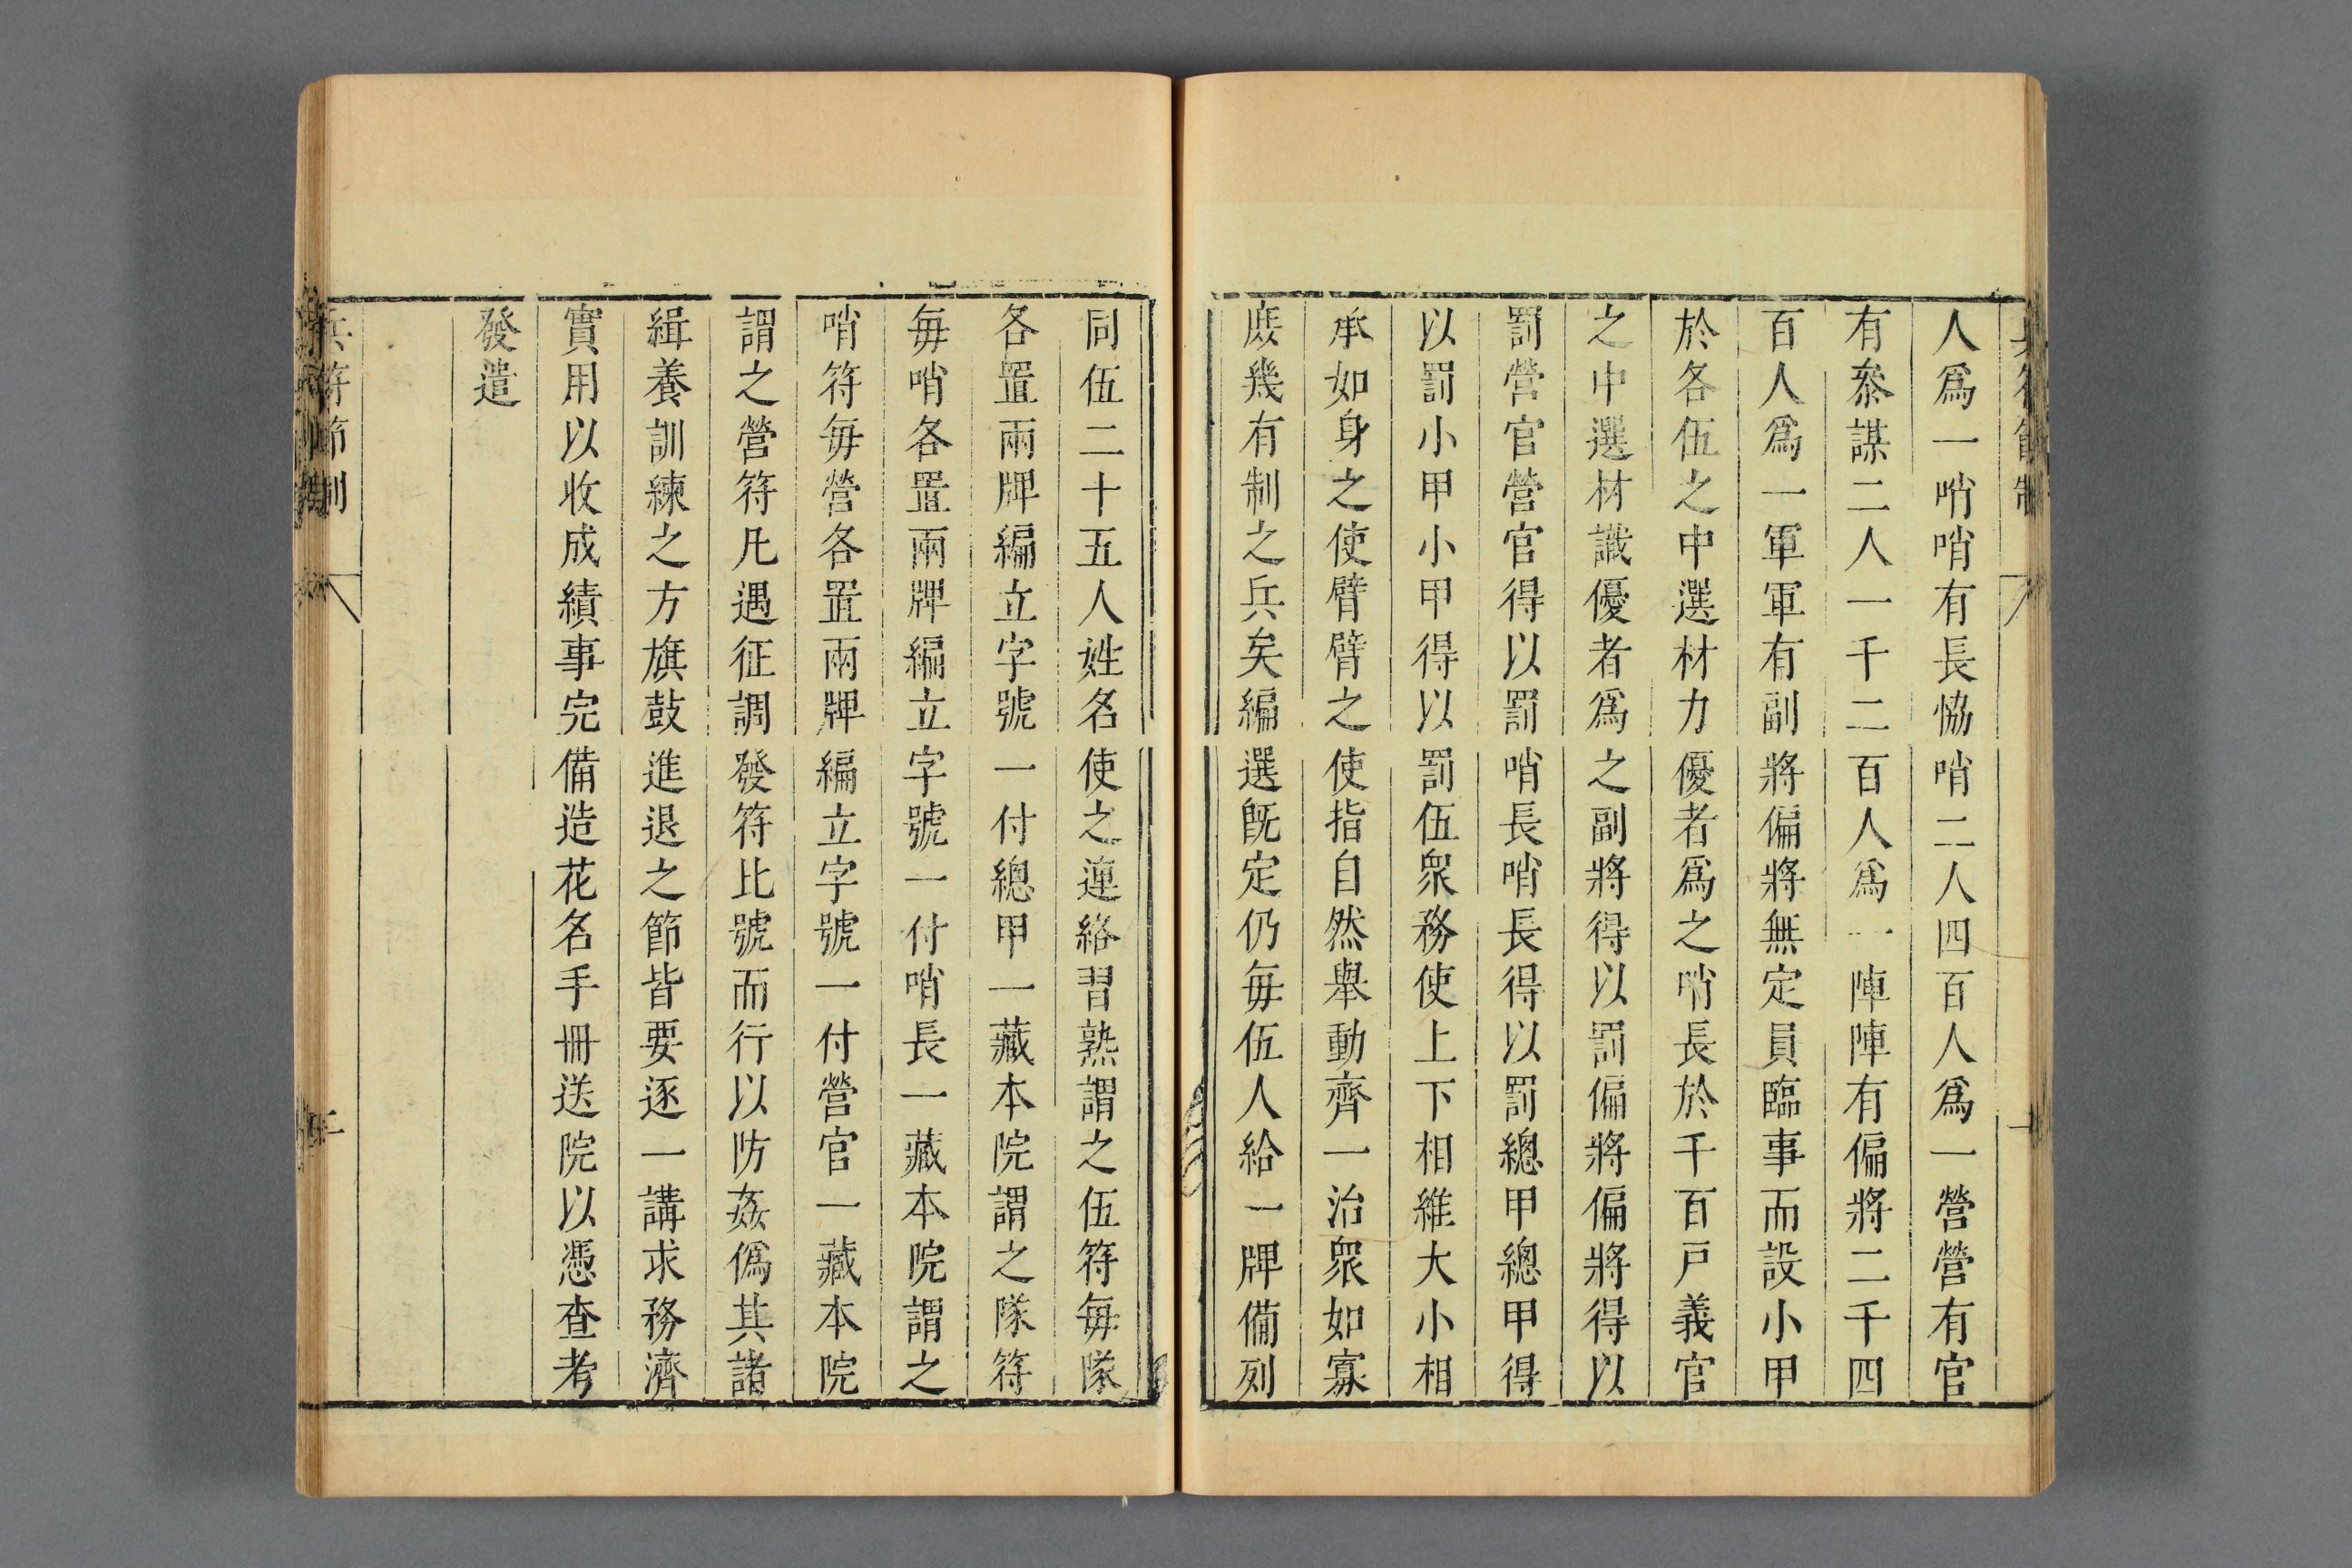 兵符節制
人爲一哨哨有長恊哨二人四百人爲一營營有官
有叅謀二人一千二百人爲一陣陣有偏將二千四
百人爲一軍軍有副將偏將無定員臨事而設小甲
於各伍之中選材力優者爲之哨長於千百戸義官
之中選材識優者爲之副將得以罰偏將偏將得以
罰營官營官得以罰哨長哨長得以罰總甲總甲得
以罰小甲小甲得以罰伍衆務使上下相維大小相
承如身之使臂臂之使指自然舉動齊一治衆如寡
庻幾有制之兵矣編選旣定仍每伍人給一牌備列
同伍二十五人姓名使之連絡習熟謂之伍符每隊
各置兩牌編立字號一付總甲一藏本院謂之隊符
每哨各置兩牌編立字號一付哨長一藏本院謂之
哨符每營各置兩牌編立字號一付營官一藏本院
謂之營符凡遇征調發符比號而行以防姦僞其諸
緝養訓練之方旗鼓進退之節皆要逐一講求務濟
實用以收成績事完備造花名手冊送院以憑查考
發遣
兵符節制